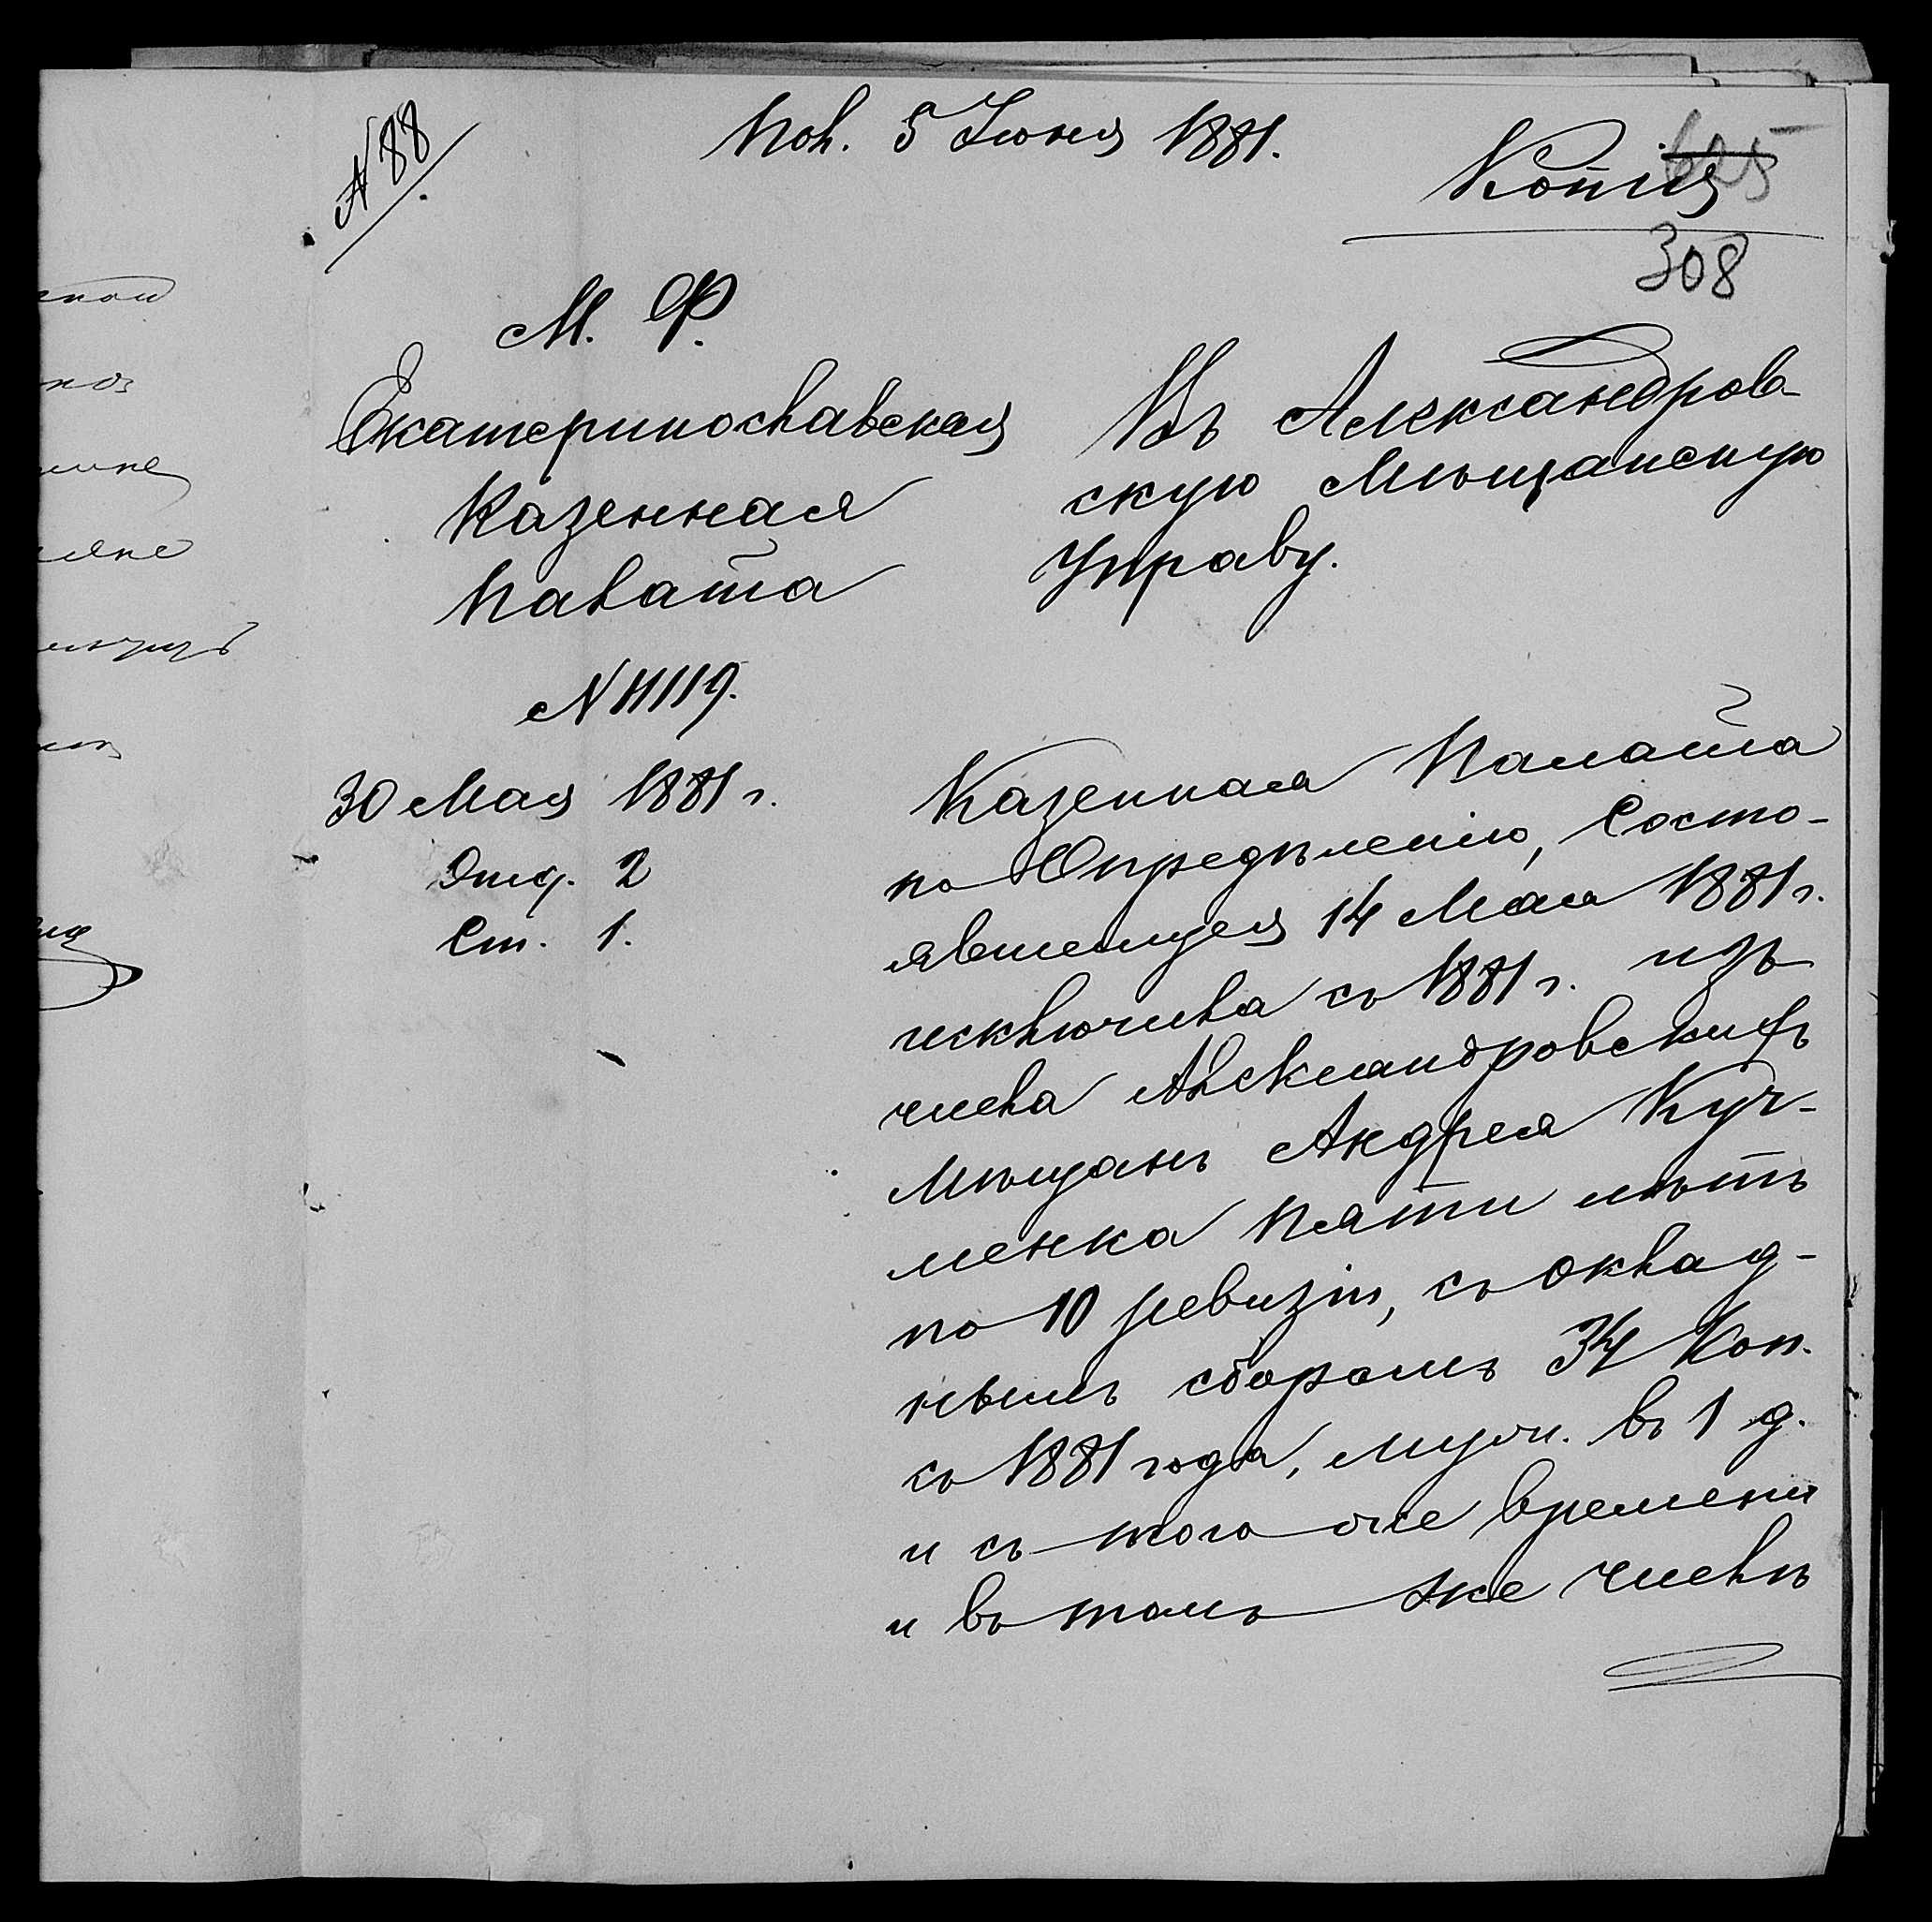 № 88
Пол. 5 Іюня 1881.
Копія
308
М. Ф.
Екатеринославская
Казенная
Палата
№ 11119.
30 Мая 1881 г.
Отд. 2
Ст. 1.
Въ Александров-
скую Мѣщанскую
Управу.
Казенная Палата
по Опредѣленію, Состо-
явшемуся 14 Мая 1881 г.
исключила съ 1881 г. изъ
числа Александровскихъ
Мѣщанъ Андрея Куч-
менка пяти лѣтъ
по 10 ревизіи, съ оклад-
нымъ сборомъ 34 Коп.
съ 1881 года, муж. въ 1 д.
и съ того же времени
и въ томъ же числѣ